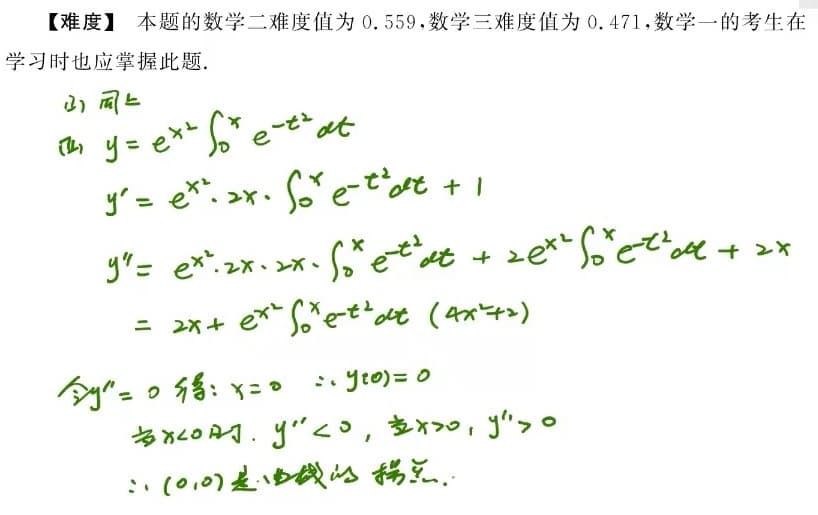 【难度】 本题的数学二难度值为 0.559,数学三难度值为 0.471,数学一的考生在
学习时也应掌握此题.
(I) 同上
(II) y = e^{x^2} ∫_0^x e^{-t^2} dt
y' = e^{x^2} · 2x · ∫_0^x e^{-t^2} dt + 1
y'' = e^{x^2} · 2x · 2x · ∫_0^x e^{-t^2} dt + 2e^{x^2} ∫_0^x e^{-t^2} dt + 2x
= 2x + e^{x^2} ∫_0^x e^{-t^2} dt (4x^2+2)
令y'' = 0 得: x = 0 ∴ y(0) = 0
当x<0时. y'' < 0, 当x>0, y'' > 0
∴ (0,0) 是曲线的 拐点.